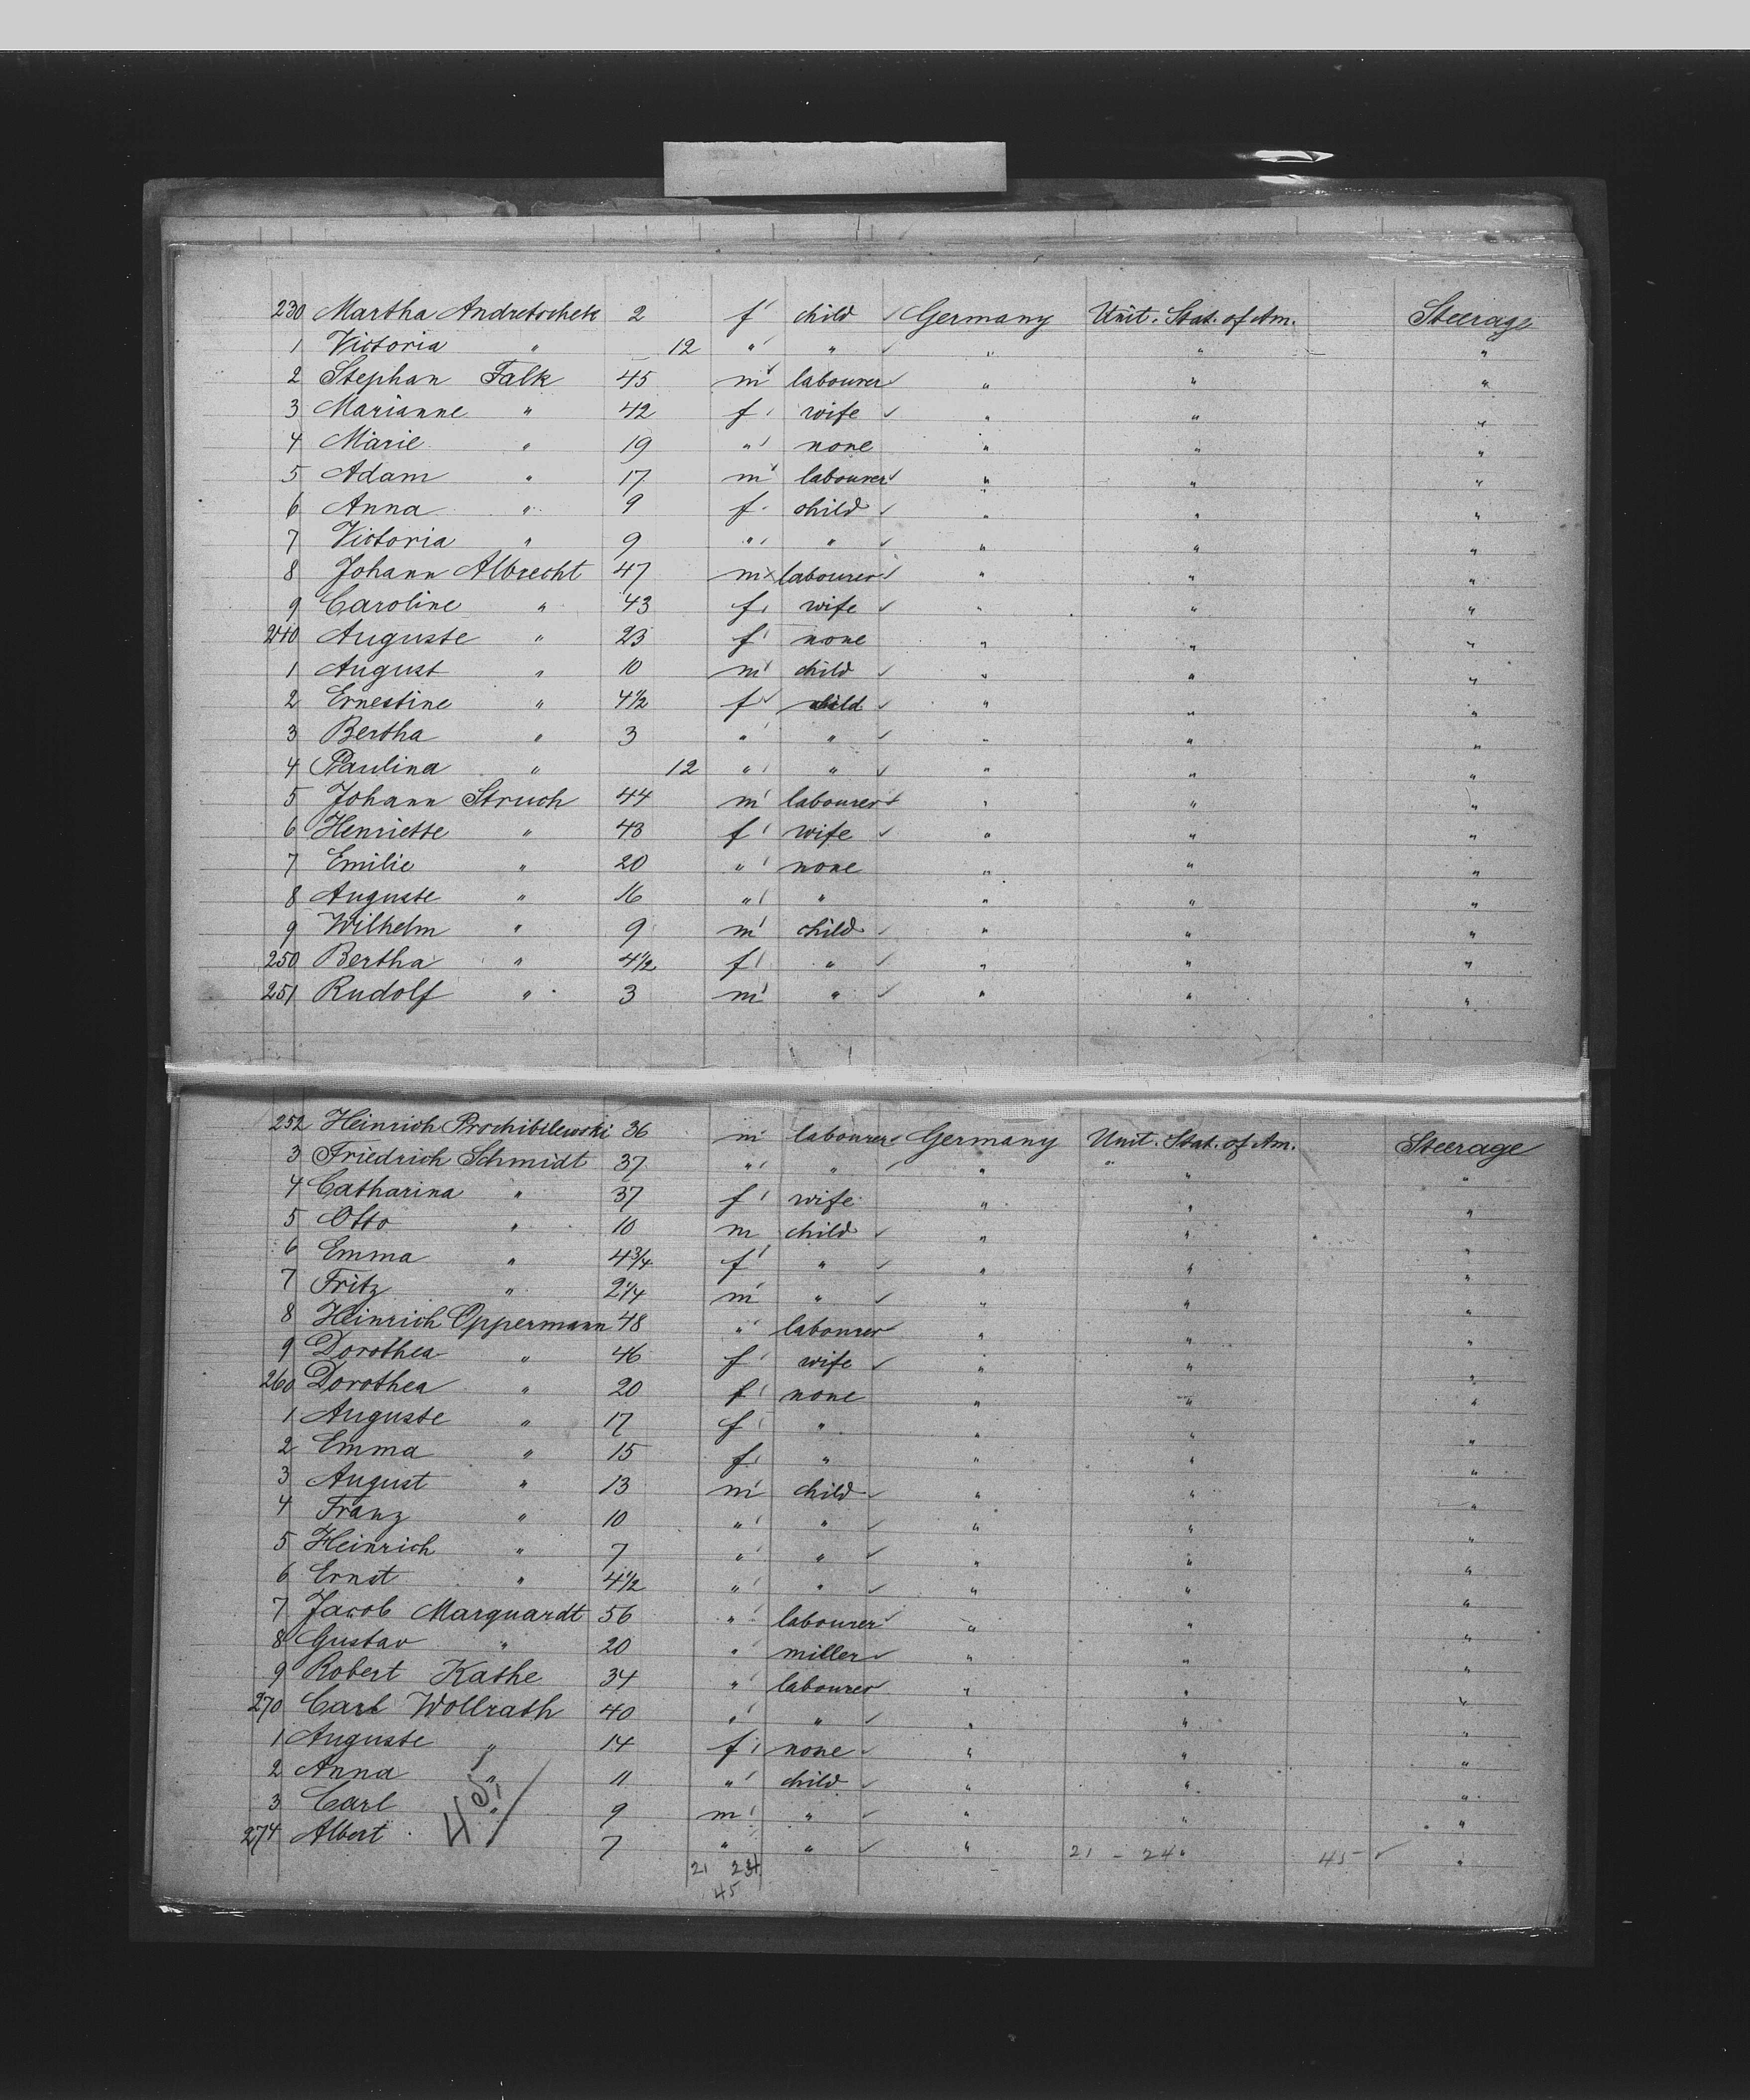 230 Martha Andretschek 2 f child ✓ Germany Unit. Stat. of Am. Steerage
1 Victoria " 12 " " ✓ " " "
2 Stephan Falk 45 m labourer ✓ " " "
3 Marianne " 42 f wife ✓ " " "
4 Marie " 19 " none " " "
5 Adam " 17 m labourer ✓ " " "
6 Anna " 9 f child ✓ " " "
7 Victoria " 9 " " ✓ " " "
8 Johann Albrecht 47 m labourer ✓ " " "
9 Caroline " 43 f wife ✓ " " "
240 Auguste " 23 f none " " "
1 August " 10 m child ✓ " " "
2 Ernestine " 4 1/2 f child ✓ " " "
3 Bertha " 3 " " ✓ " " "
4 Paulina " 12 " " ✓ " " "
5 Johann Struch 44 m labourer ✓ " " "
6 Henriette " 43 f wife ✓ " " "
7 Emilie " 20 " none " " "
8 Auguste " 16 " " " " "
9 Wilhelm " 9 m child ✓ " " "
250 Bertha " 4 1/2 f " ✓ " " "
251 Rudolf " 3 m " ✓ " " "
252 Heinrich Prochibilewski 36 m labourer Germany Unit. Stat. of Am. Steerage
3 Friedrich Schmidt 37 " " ✓ " " "
4 Catharina " 37 f wife " " "
5 Otto " 10 m child ✓ " " "
6 Emma " 4 3/4 f " ✓ " " "
7 Fritz " 2 1/4 m " ✓ " " "
8 Heinrich Oppermann 48 " labourer " " "
9 Dorothea " 46 f wife ✓ " " "
260 Dorothea " 20 f none " " "
1 Auguste " 17 f " " " "
2 Emma " 15 f " " " "
3 August " 13 m child ✓ " " "
4 Franz " 10 " " ✓ " " "
5 Heinrich " 7 " " ✓ " " "
6 Ernst " 4 1/2 " " ✓ " " "
7 Jacob Marquardt 56 " labourer ✓ " " "
8 Gustav " 20 " miller ✓ " " "
9 Robert Kathe 34 " labourer " " "
270 Carl Wollrath 40 " " ✓ " " "
1 Auguste " 14 f none ✓ " " "
2 Anna " 11 " child ✓ " " "
3 Carl " 9 m " ✓ " " "
274 Albert 7 " " ✓ " " "
45
21 24 21 - 24 45 ✓
45